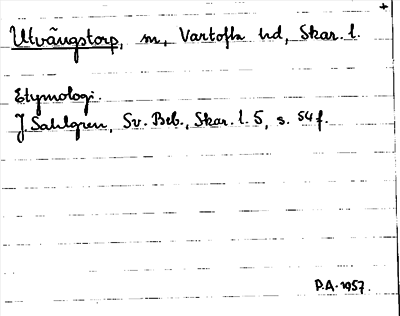 +
Utvängstorp, m, Vartofta hd, Skar. l.
Etymologi.
J. Sahlgren, Sv. Beb., Skar. l. 5, s. 54 f.
P.A. 1957.